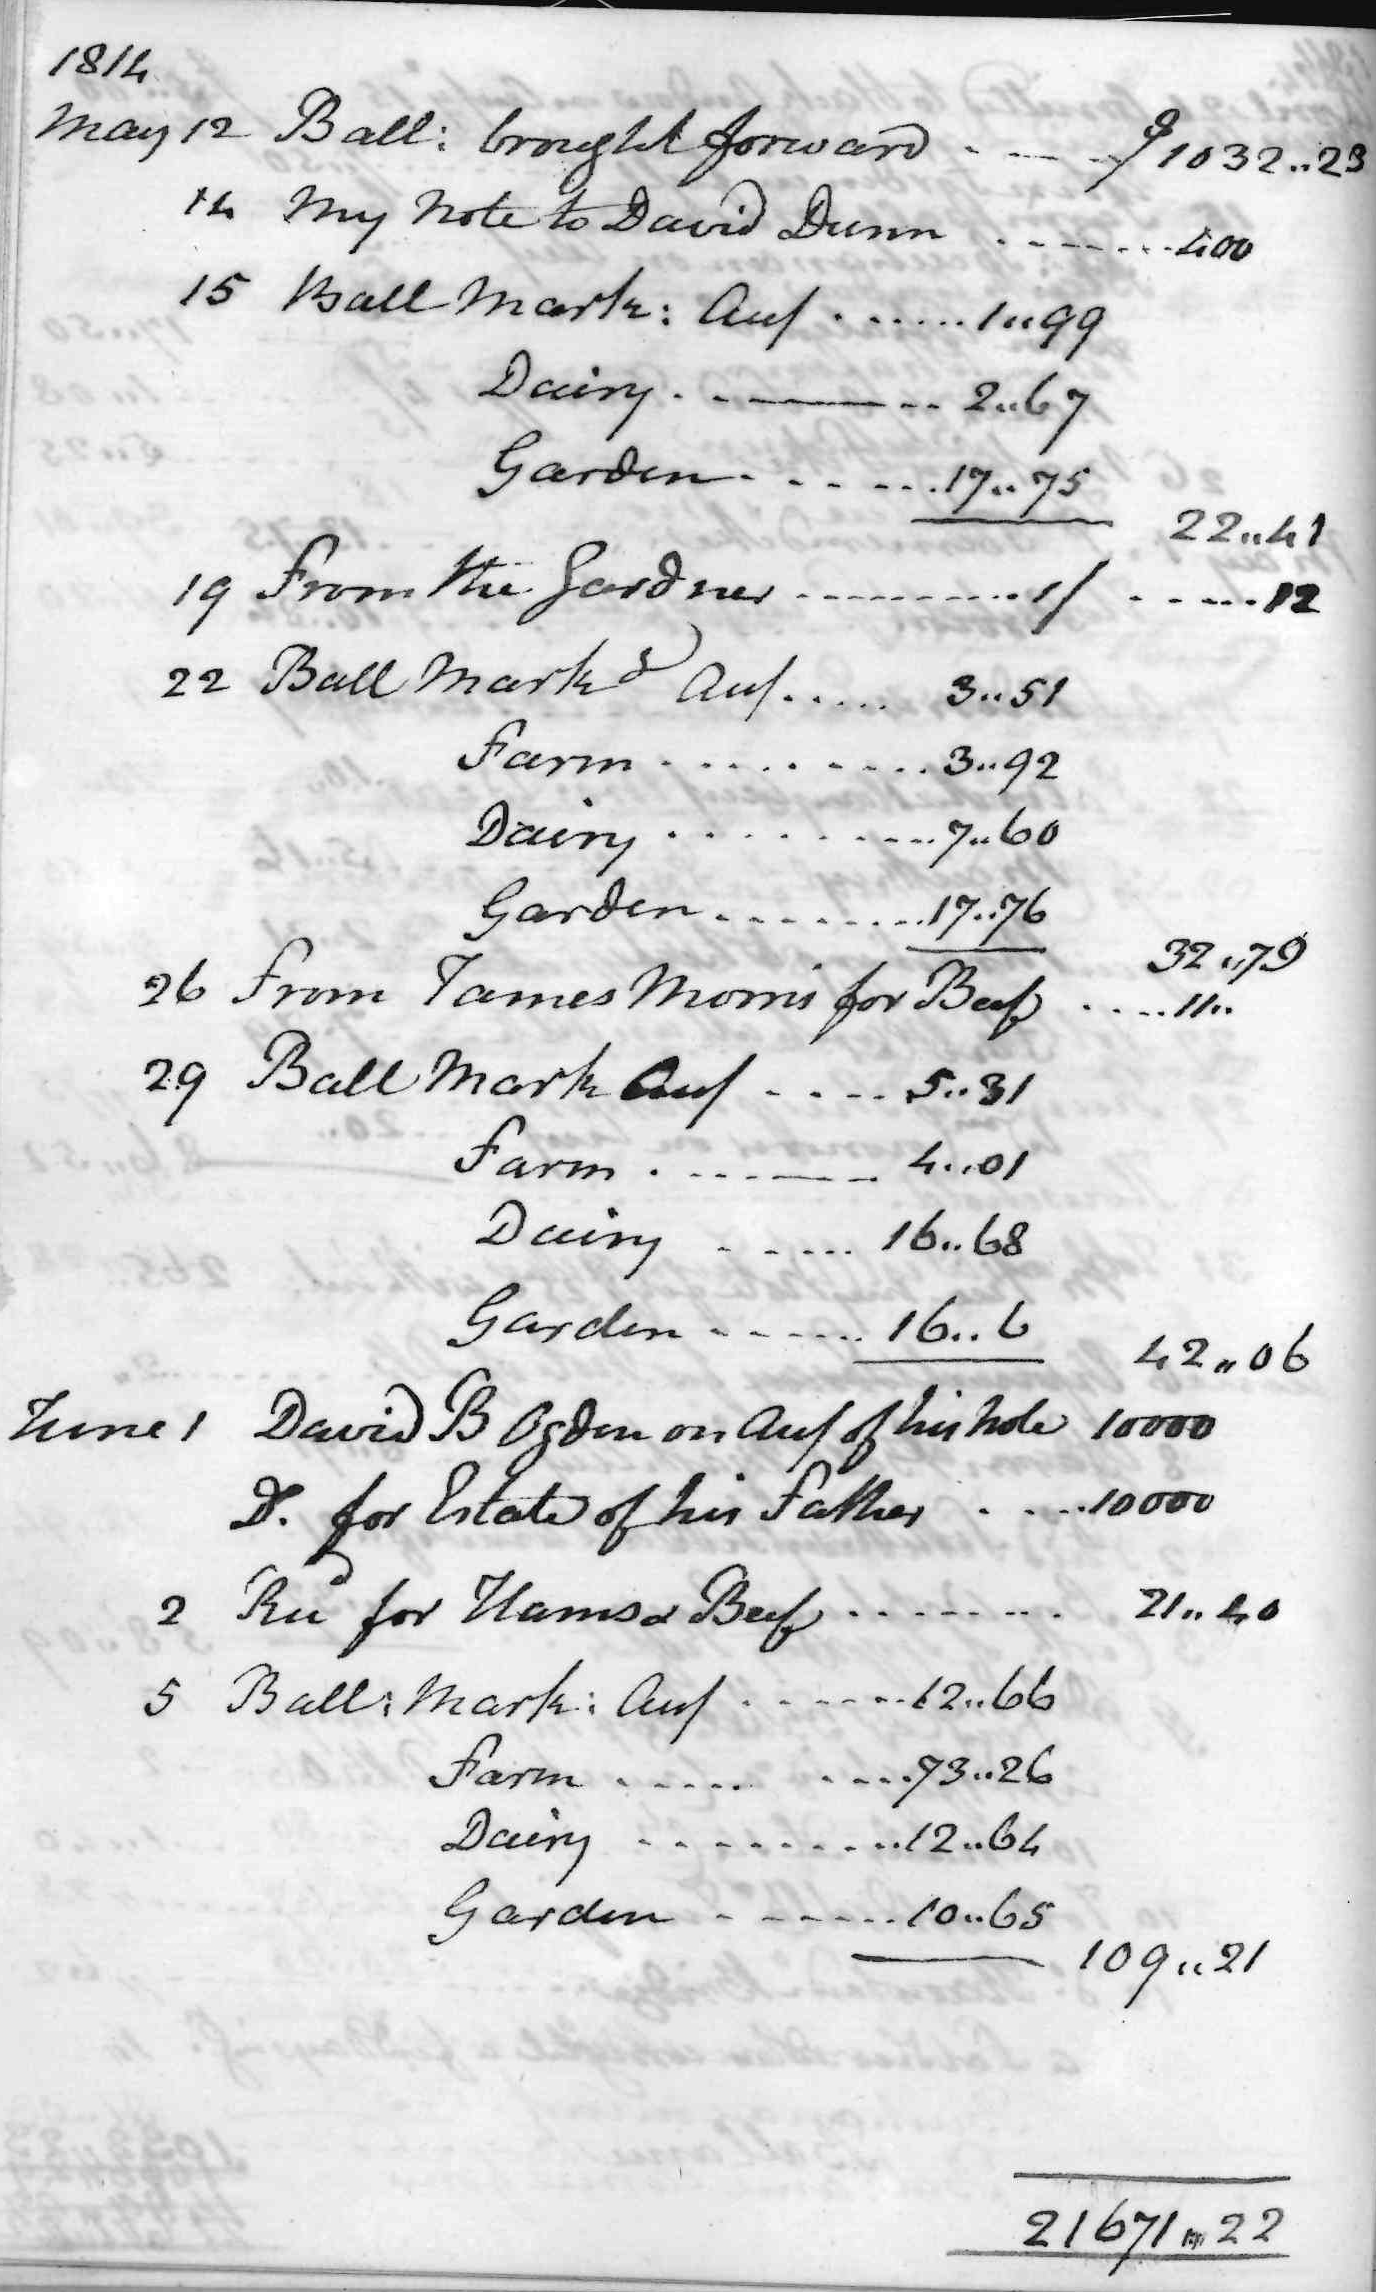 1814
May 12 Ball: brought forward - - - $ 1032..23
14 My Note to David Dunn . - - - - . . . 400
15 Ball Mark: Acct . . . . . . 1..99
Dairy . - ——— - - 2..67
Garden - . - - - - . 17..75
22..41
19 From the Gardner - - - - - - - - - 1/ - - - - - - 12
22 Ball Markd Acct . . . . . 3..51
Farm . . . . . . . . . . 3..92
Dairy . . . . . . . . . 7..60
Garden . - - - - - - - . 17..76
32..79
26 From James Morris for Beef . . . . 11..
29 Ball Mark Acct - - - - 5..31
Farm . - - - - - - 4..01
Dairy - - - - - . . 16..68
Garden - - - - - - . 16..6
42..06
June 1 David B Ogden on Acct of his Note 10000
Do. for Estate of his Father . . . . 10000
2 Recd for Hams & Beef . . . . . . . . 21..40
5 Ball: Mark: Acct - - - - - - . 12..66
Farm . - - - - . . . . 73..26
Dairy - - - - - - - - . . 12..64
Garden - - - - - - . . 10..65
109..21
21671..22